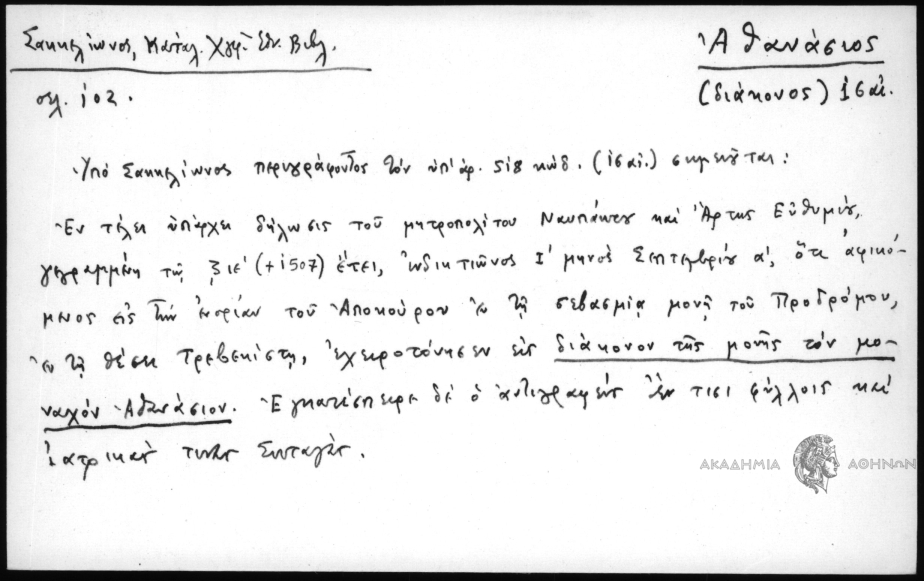 Σακκελίωνος, Κατάλ. Χγρ. Ἐθν. Βιβλ.
σελ. 102.
Ἀθανάσιος
(διάκονος) 16 αἰ.
Ὑπὸ Σακκελίωνος περιγράφοντος τὸν ὑπ' ἀρ. 518 κώδ. (16 αἰ.) σημειοῦται:
Ἐν τέλει ὑπάρχει δήλωσις τοῦ μητροπολίτου Ναυπάκτου καὶ Ἄρτης Εὐθυμίου,
γεγραμμένη τῷ ζιε΄ (+1507) ἔτει, ἰνδικτιῶνος Ι΄ μηνὸς Σεπτεμβρίου α΄, ὅτε ἀφικό-
μενος εἰς τὴν ἐνορίαν τοῦ Ἀποκούρου ἐν τῇ σεβασμίᾳ μονῇ τοῦ Προδρόμου,
ἐν τῇ θέσει Τρεβεκίστῃ, ἐχειροτόνησεν εἰς διάκονον τῆς μονῆς τὸν μο-
ναχὸν Ἀθανάσιον. Ἐγκατέσπειρε δὲ ὁ ἀντιγραφεὺς ἔν τισι φύλλοις καὶ
ἰατρικάς τινας συνταγάς.
ΑΚΑΔΗΜΙΑ ΑΘΗΝΩΝ